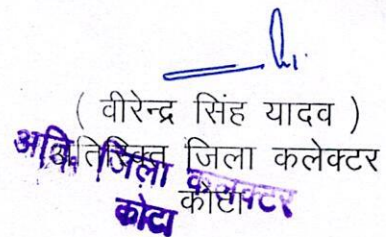 ( वीरेन्द्र सिंह यादव )
अतिरिक्त जिला कलेक्टर
कोटा
अति. जिला कलक्टर
कोटा